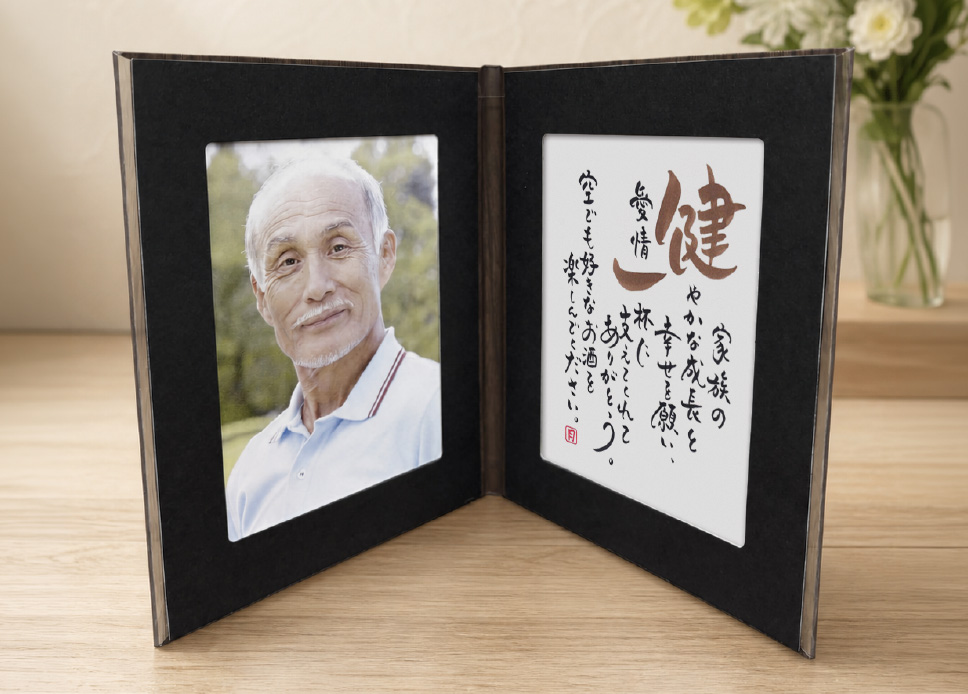 家族の
健やかな成長と
幸せを願い、
愛情一杯に
支えてくれて
ありがとう。
空でも好きなお酒を
楽しんでください。